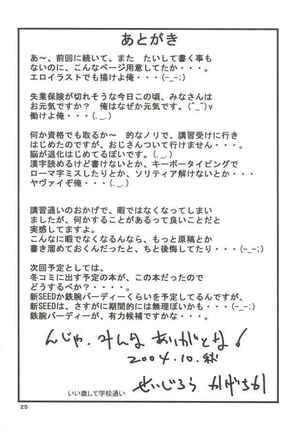 あとがき
あ～、前回に続いて、また たいして書く事も
ないのに、こんなページ用意してたか・・・。
エロイラストでも描けよ俺・・・(-_-;)
失業保険が切れそうな今日この頃、みなさんは
お元気ですか？ 俺はなぜか元気です。(^_^)y
働けよ俺・・・(._.)
何か資格でも取るか～ 的なノリで、講習受けに行き
はじめたのですが、おじさんついて行けません・・・。
脳が退化はじめてるぽいです。(._.)
漢字読めるけど書けないとか、キーボータイピングで
ローマ字ミスしたりとか、ソリティア解けないとか・・・
ヤヴァイぞ俺・・・(._.)
講習通いのおかげで、暇ではなくなってしまい
ましたが、何かすることがあるって良いことだと
実感してますよ。
こんなに暇でなくなるんなら、もっと原稿とか
書き溜めておくんだったと、ちと後悔してたり・・・(-_-;)
次回予定としては、
冬コミに出す予定の本が、この本だったので
どうするべか？・・・。
新SEEDか鉄腕バーディーくらいを予定してるんですが、
新SEEDは、さすがに期間的には無理ぽいかも・・・(-_-;)
鉄腕バーディーが、有力候補ですかな・・・。
んじゃ、みんな ありがとな!
2004.10.秋
せいじろう かげちか
いい歳して学校通い
25